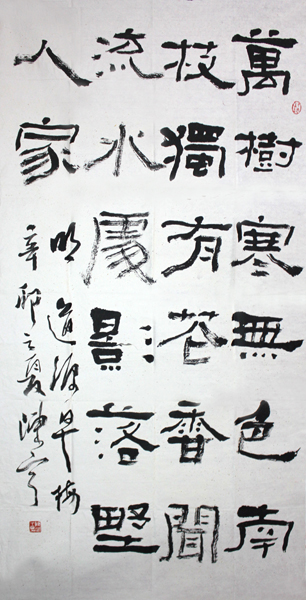 萬樹寒無色南
枝獨有花香聞
流水處影落野
人家
明道源早梅
辛卯之夏陳